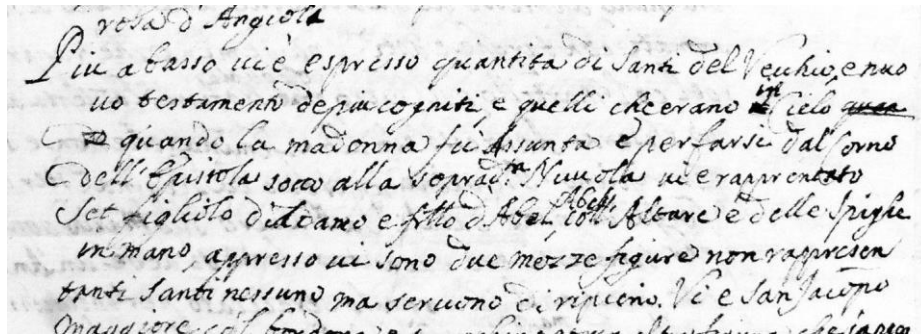 d'Angiola
Piu a basso vi è espresso quantita di Santi del Vecchio, e nuo
vo testamento de piu cogniti, e quelli che erano in Cielo quan
quando la madonna fu Assunta e per farsi dal Corno
dell'Epistola sotto alla sopradta Nuvola vi e rapprentato
Set figliolo d'Adamo e fratllo d'Abel, coll' Altare e delle Spighe
in mano, appresso vi sono due mezze figure non rappresen
tanti Santi nessuno ma servono di ripieno. Vi e San Jacopo
Maggiore col bordone